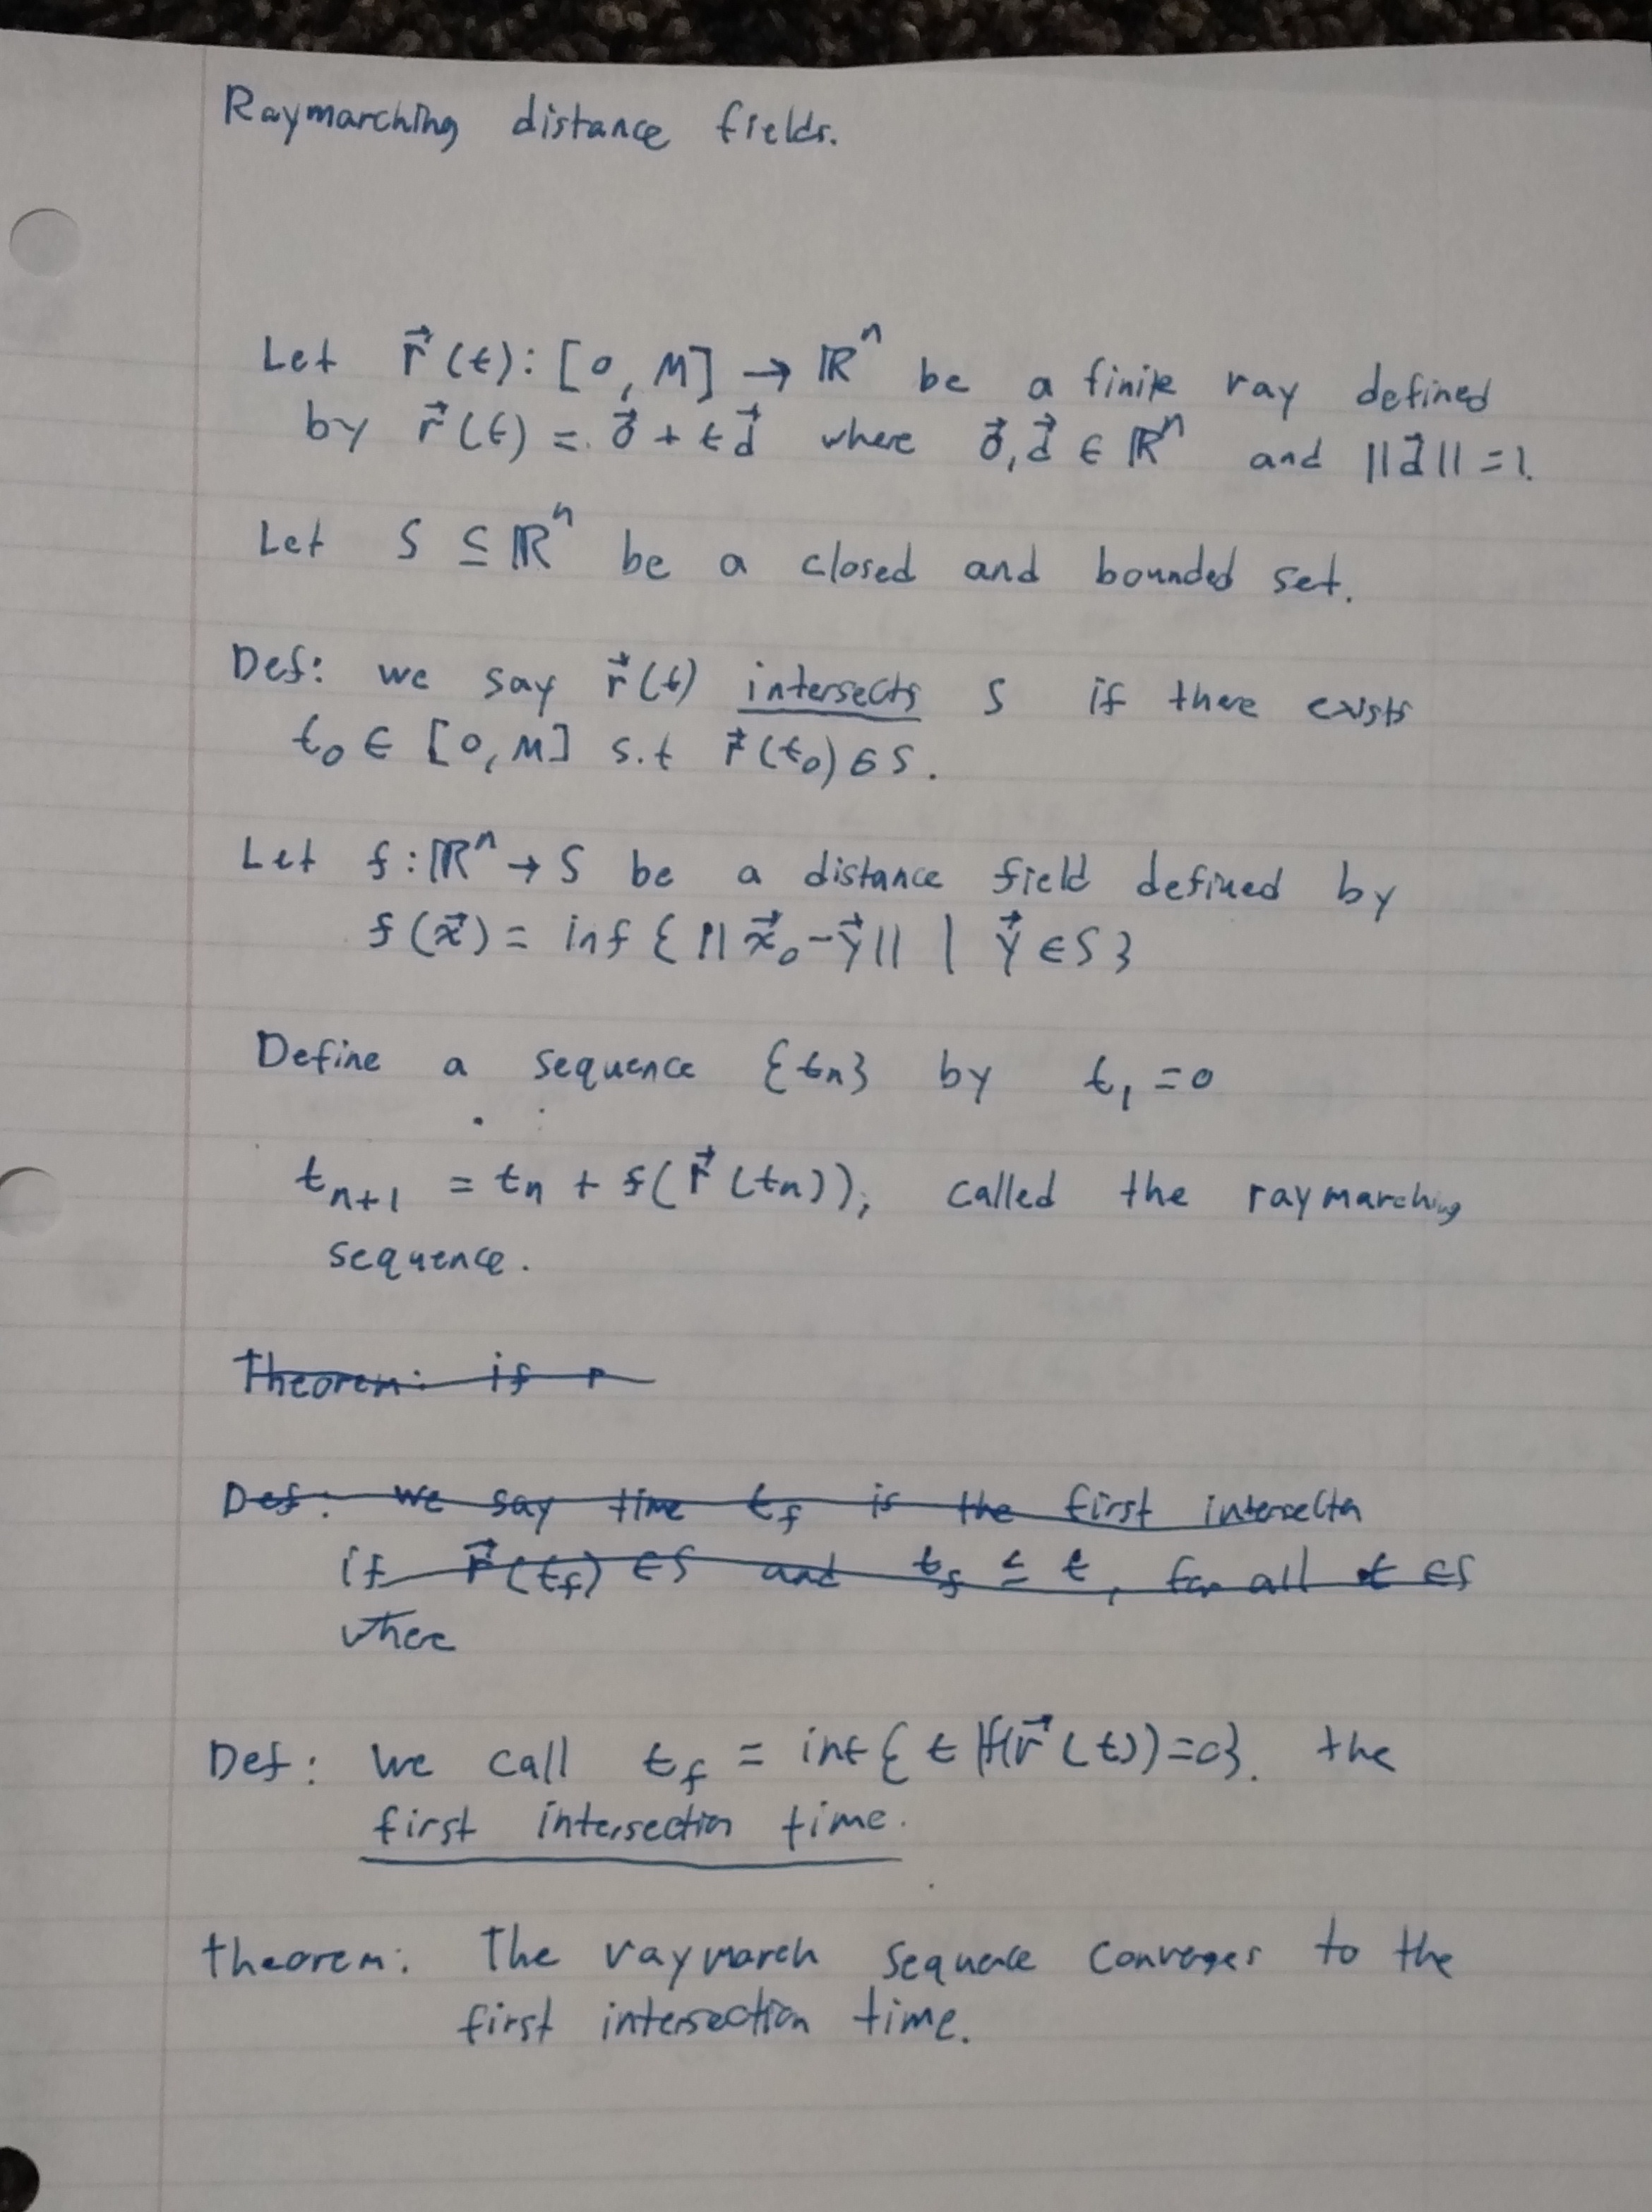 Raymarching distance fields.
Let r⃗(t): [0, M] → ℝⁿ be a finite ray defined
by r⃗(t) = o⃗ + td⃗ where o⃗, d⃗ ∈ ℝⁿ and ||d⃗|| = 1.
Let S ⊆ ℝⁿ be a closed and bounded set.
Def: we say r⃗(t) intersects S if there exists
t₀ ∈ [0, M] s.t r⃗(t₀) ∈ S.
Let f: ℝⁿ → S be a distance field defined by
f(x⃗) = inf { ||x⃗₀ - y⃗|| | y⃗ ∈ S }
Define a sequence {tₙ} by t₁ = 0
tₙ₊₁ = tₙ + f(r⃗(tₙ)), called the raymarching
sequence.
Theorem: if r
Def: we say time t_f is the first intersection
if r⃗(t_f) ∈ S and t_f ≤ t, for all t ∈ S
where
Def: we call t_f = inf{ t | f(r⃗(t)) = 0}. the
first intersection time.
theorem: The raymarch sequence converges to the
first intersection time.